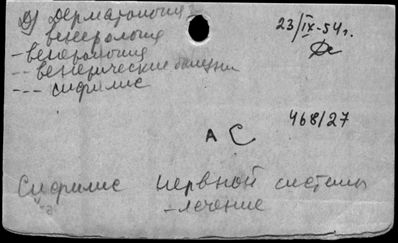 Дерматология
венерология
23/IX-54 г.
- венерология
-- венерические болезни
--- сифилис
468/27
АС
Сифилис нервной системы
- лечение